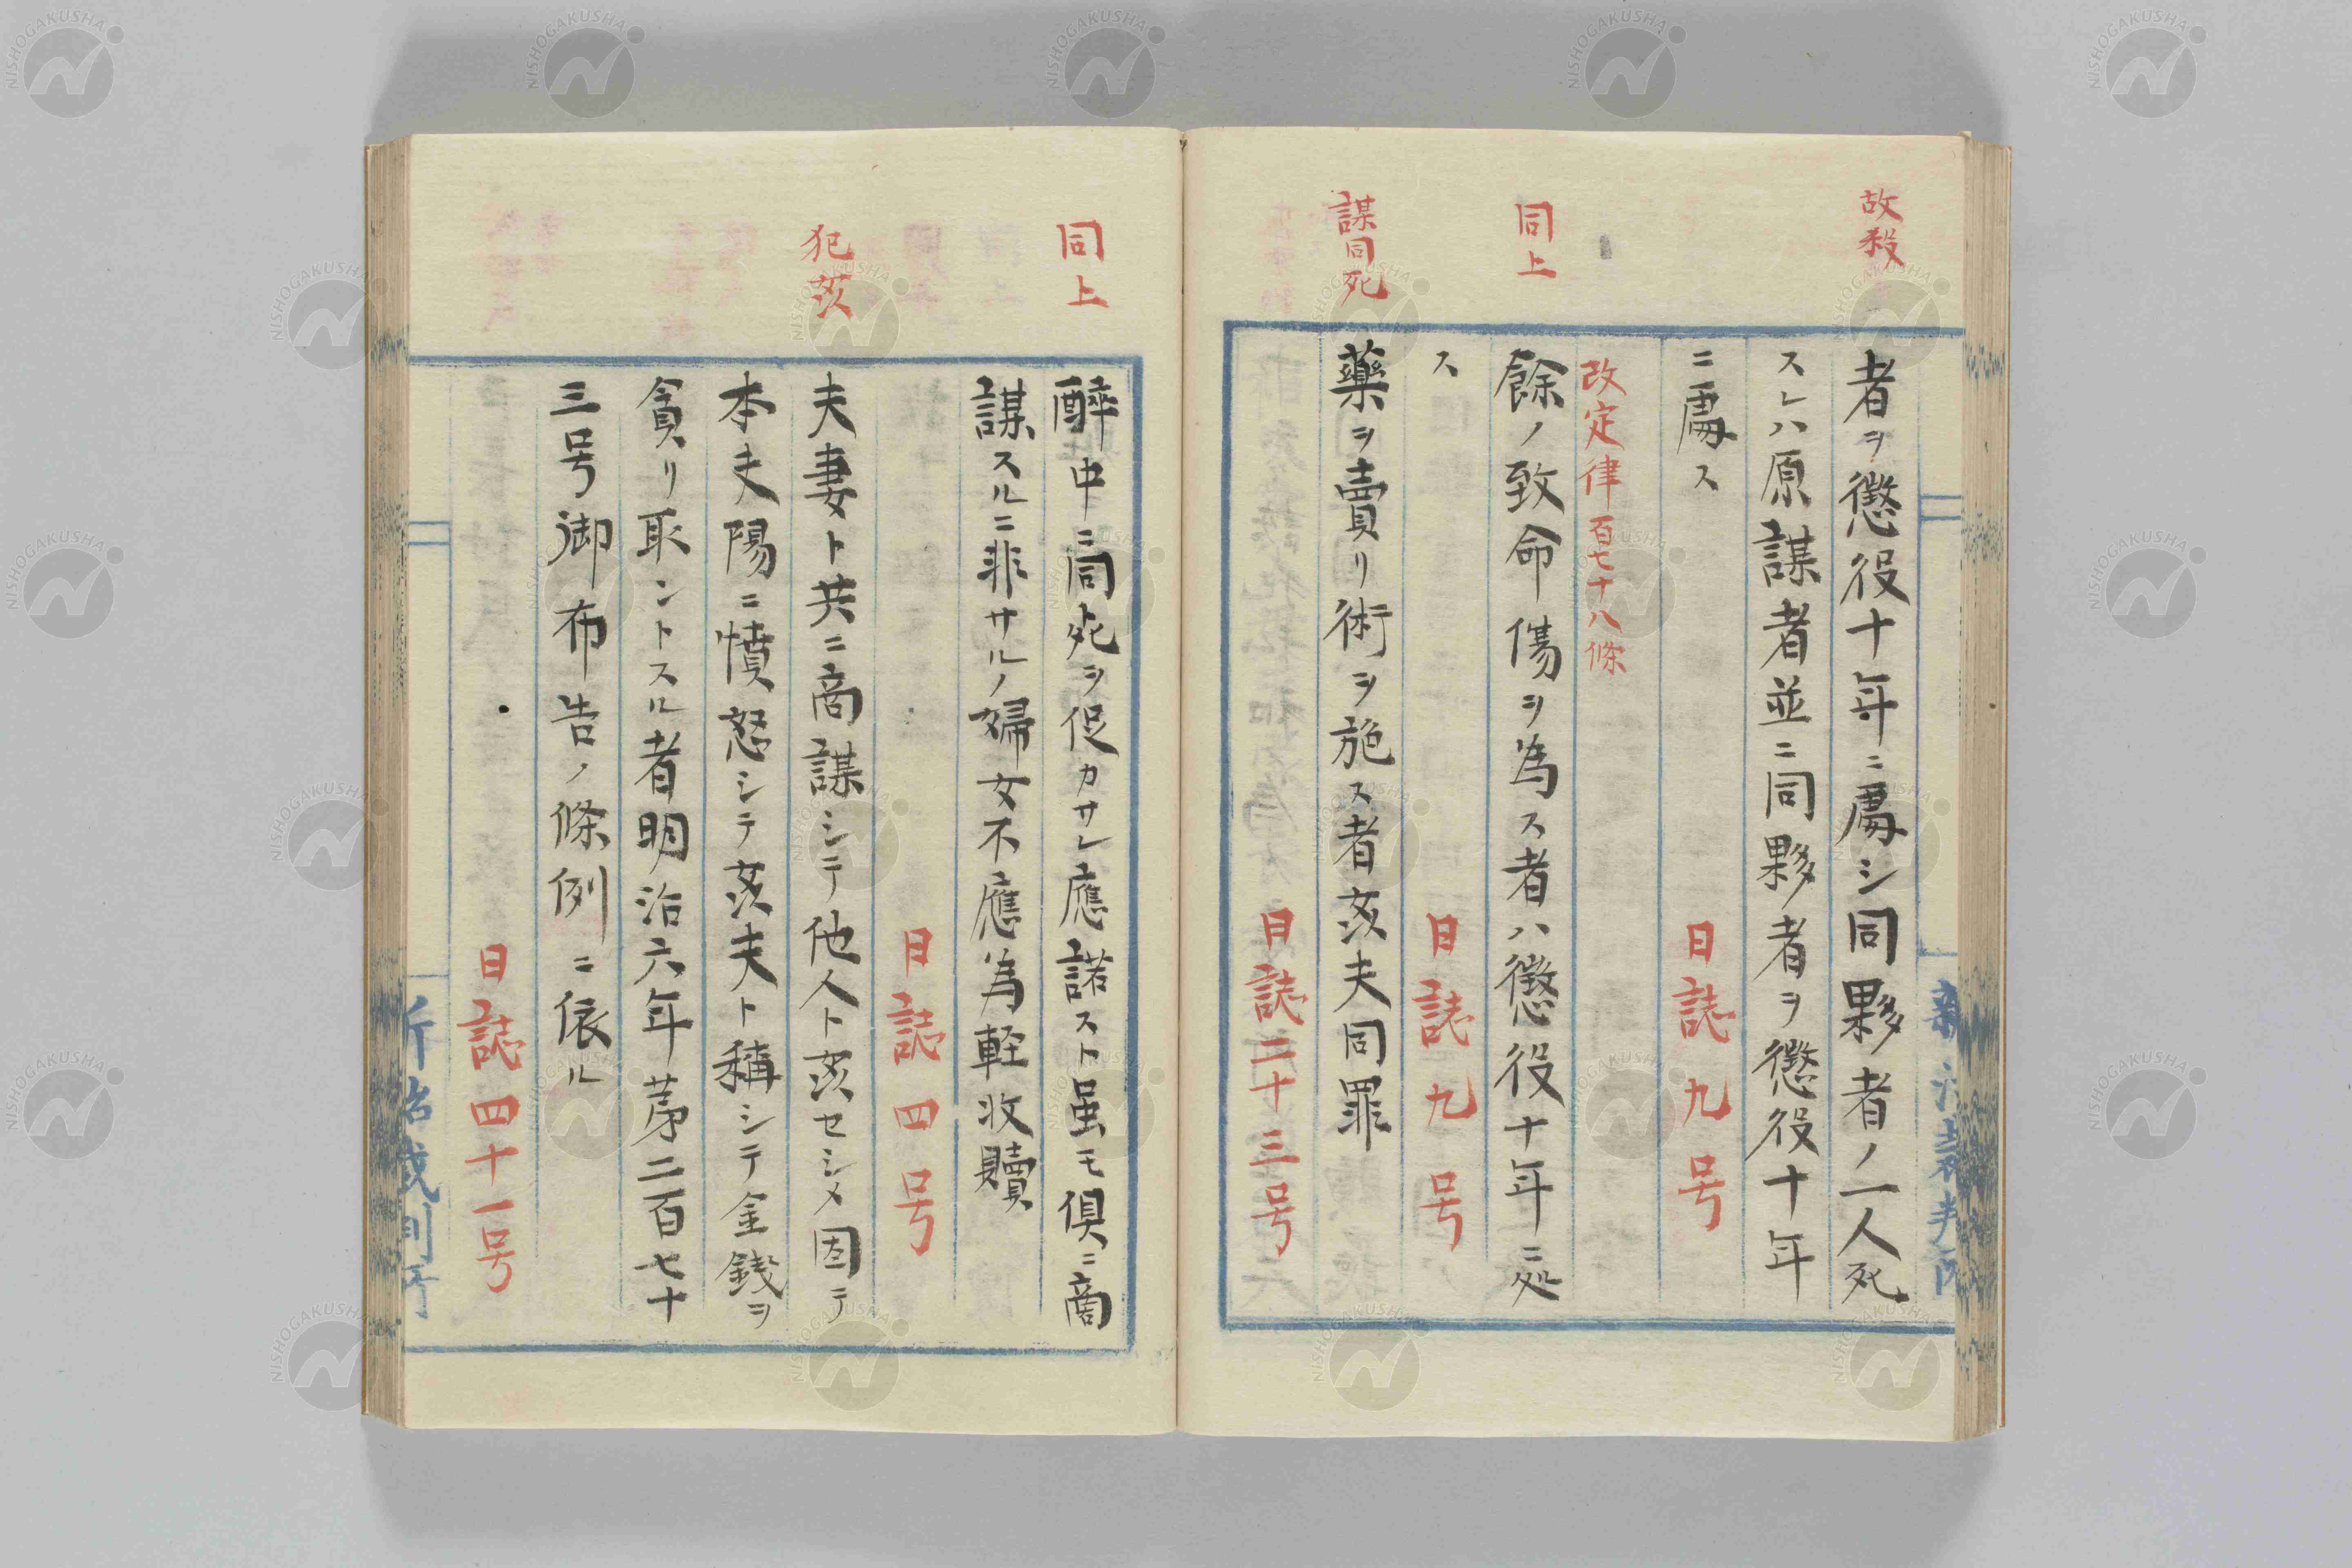 故殺
者ヲ懲役十年ニ處シ同夥者ノ一人死
スレハ原謀者並ニ同夥者ヲ懲役十年
ニ處ス
日誌九号
改定律百七十八條
同上
餘ノ致命傷ヲ為ス者ハ懲役十年ニ処
ス
日誌九号
謀同死
藥ヲ賣リ術ヲ施ス者姦夫同罪
日誌二十三号
同上
醉中ニ同死ヲ促カサレ應諾スト虽モ倶ニ商
謀スルニ非サルノ婦女不應為軽收贖
日誌四号
犯姦
夫妻ト共ニ商謀シテ他人ト姦セシメ因テ
本夫陽ニ憤怒シテ姦夫ト稱シテ金錢ヲ
貪リ取ントスル者明治六年苐二百七十
三号御布告ノ條例ニ依ル
日誌四十一号
NISHOGAKUSHA